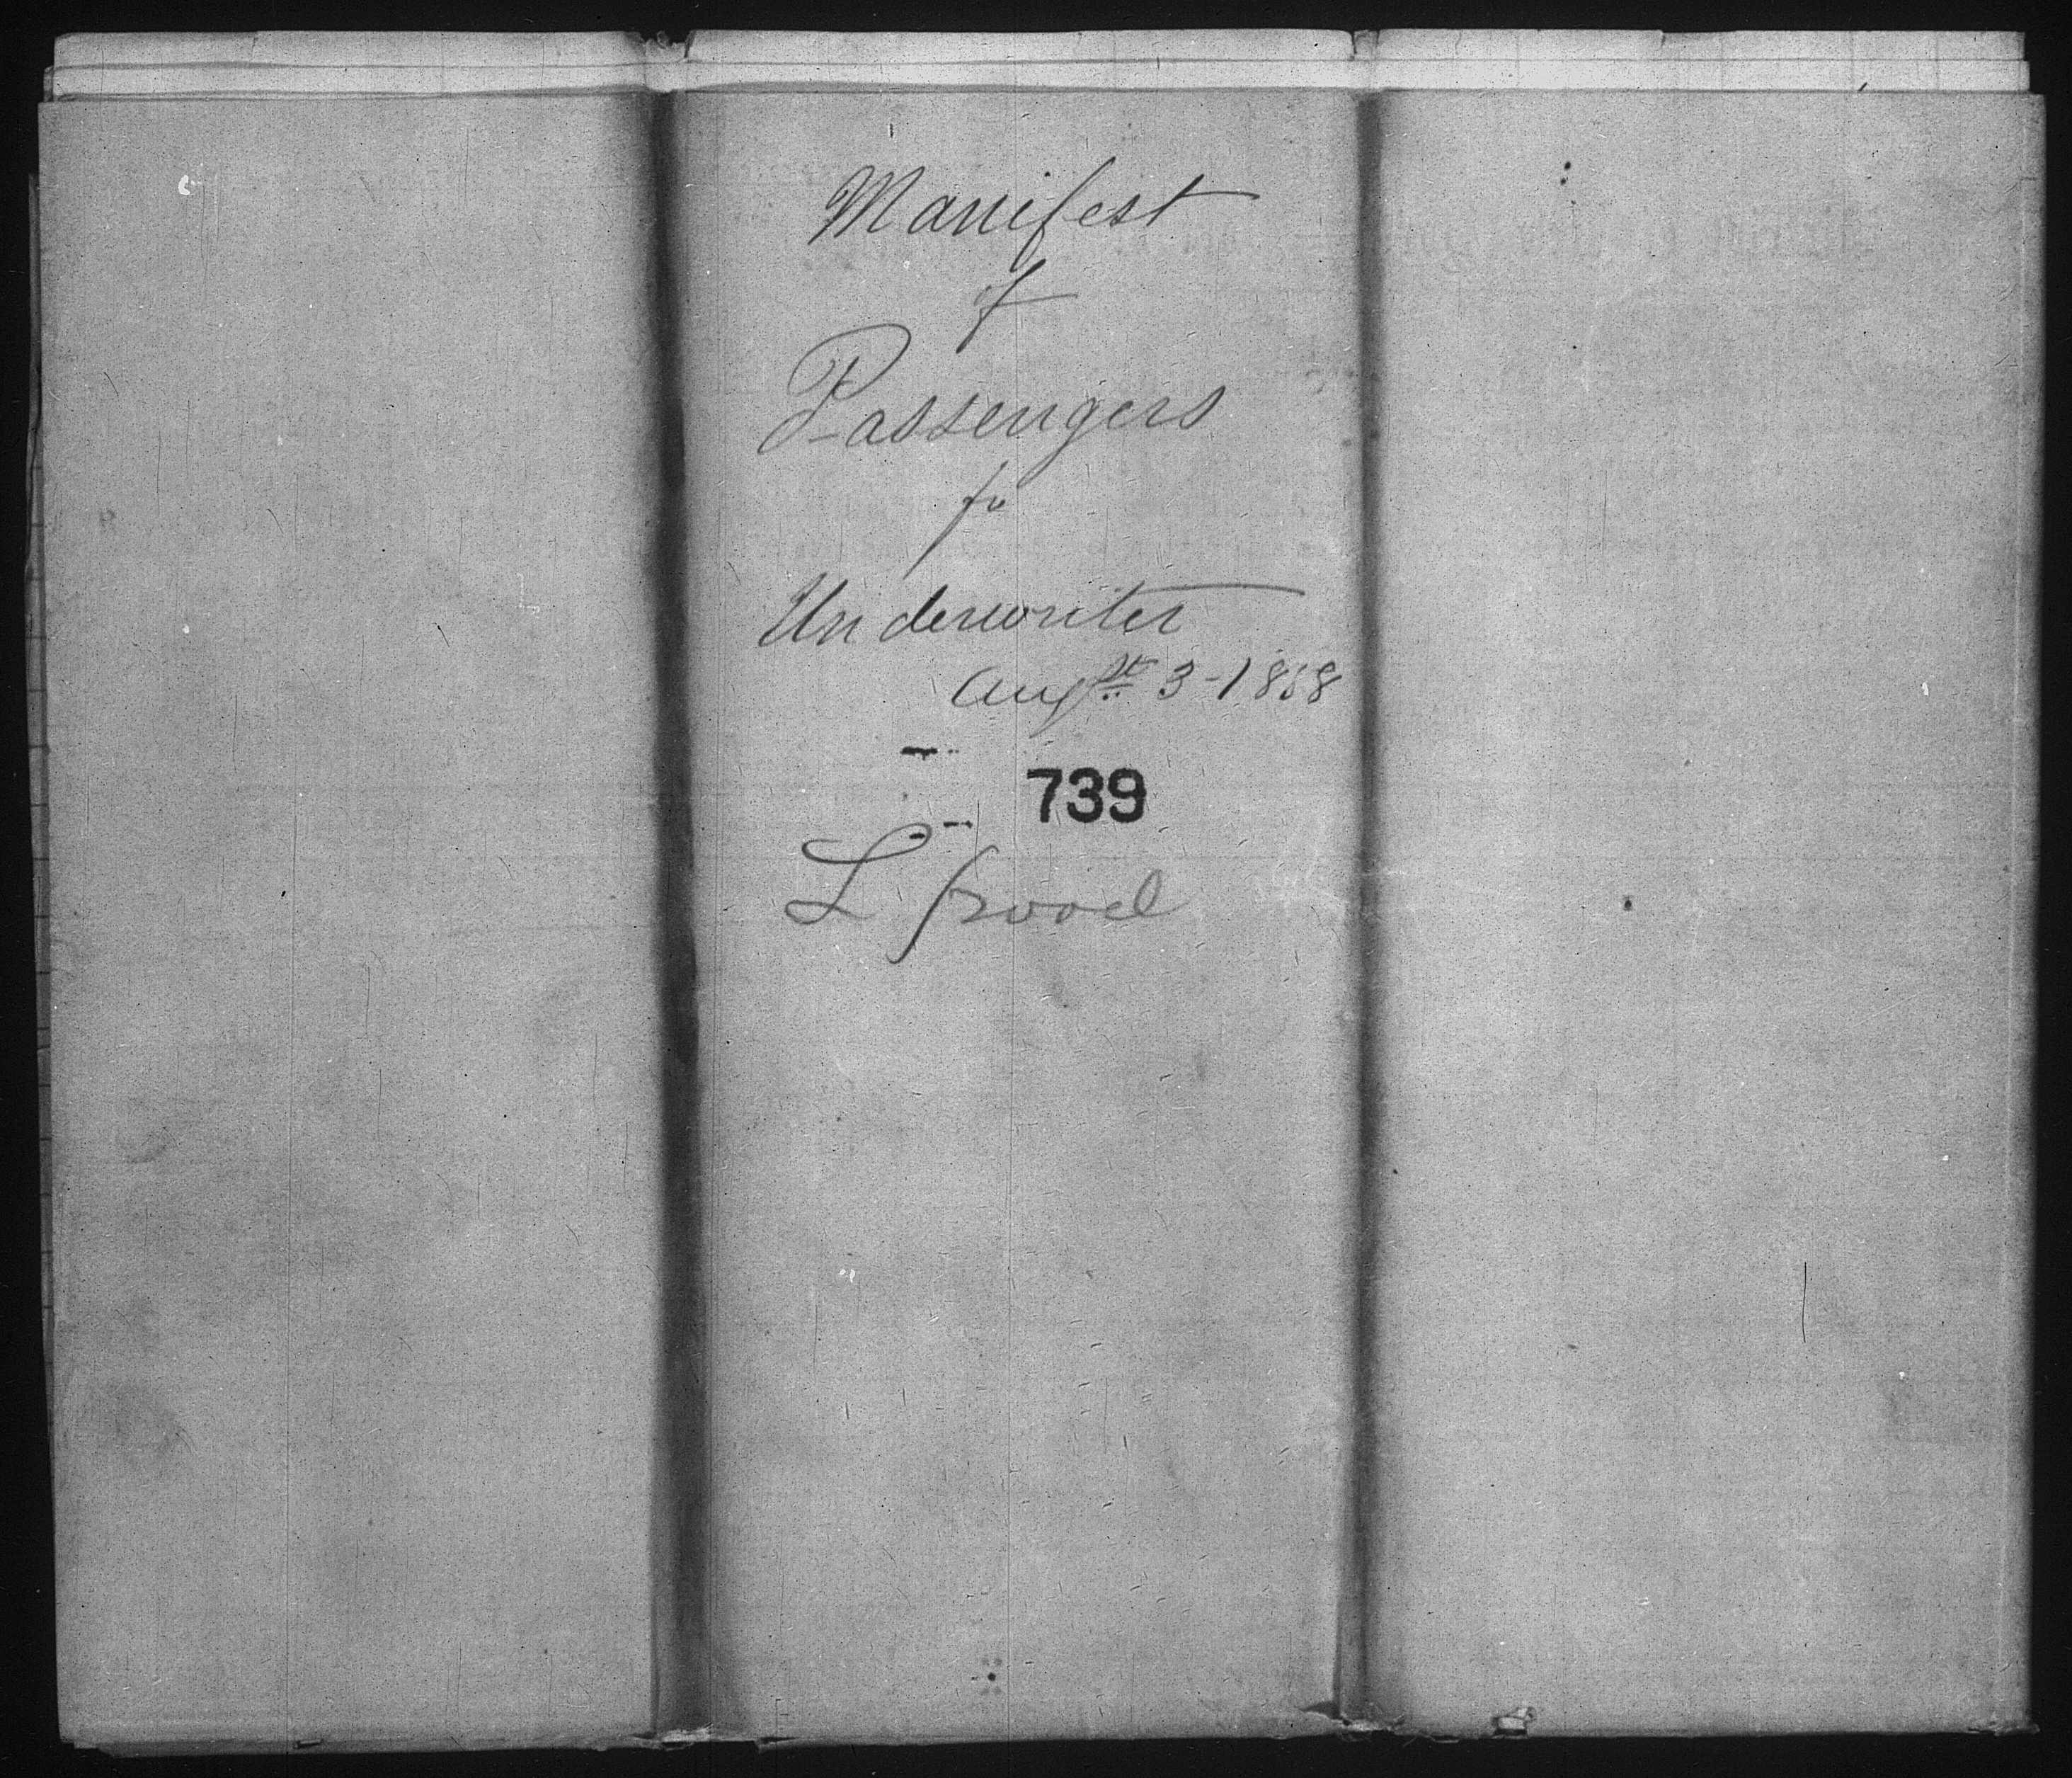 Manifest
of
Passengers
fr
Underwriter
Augst 3-1858
739
L pool